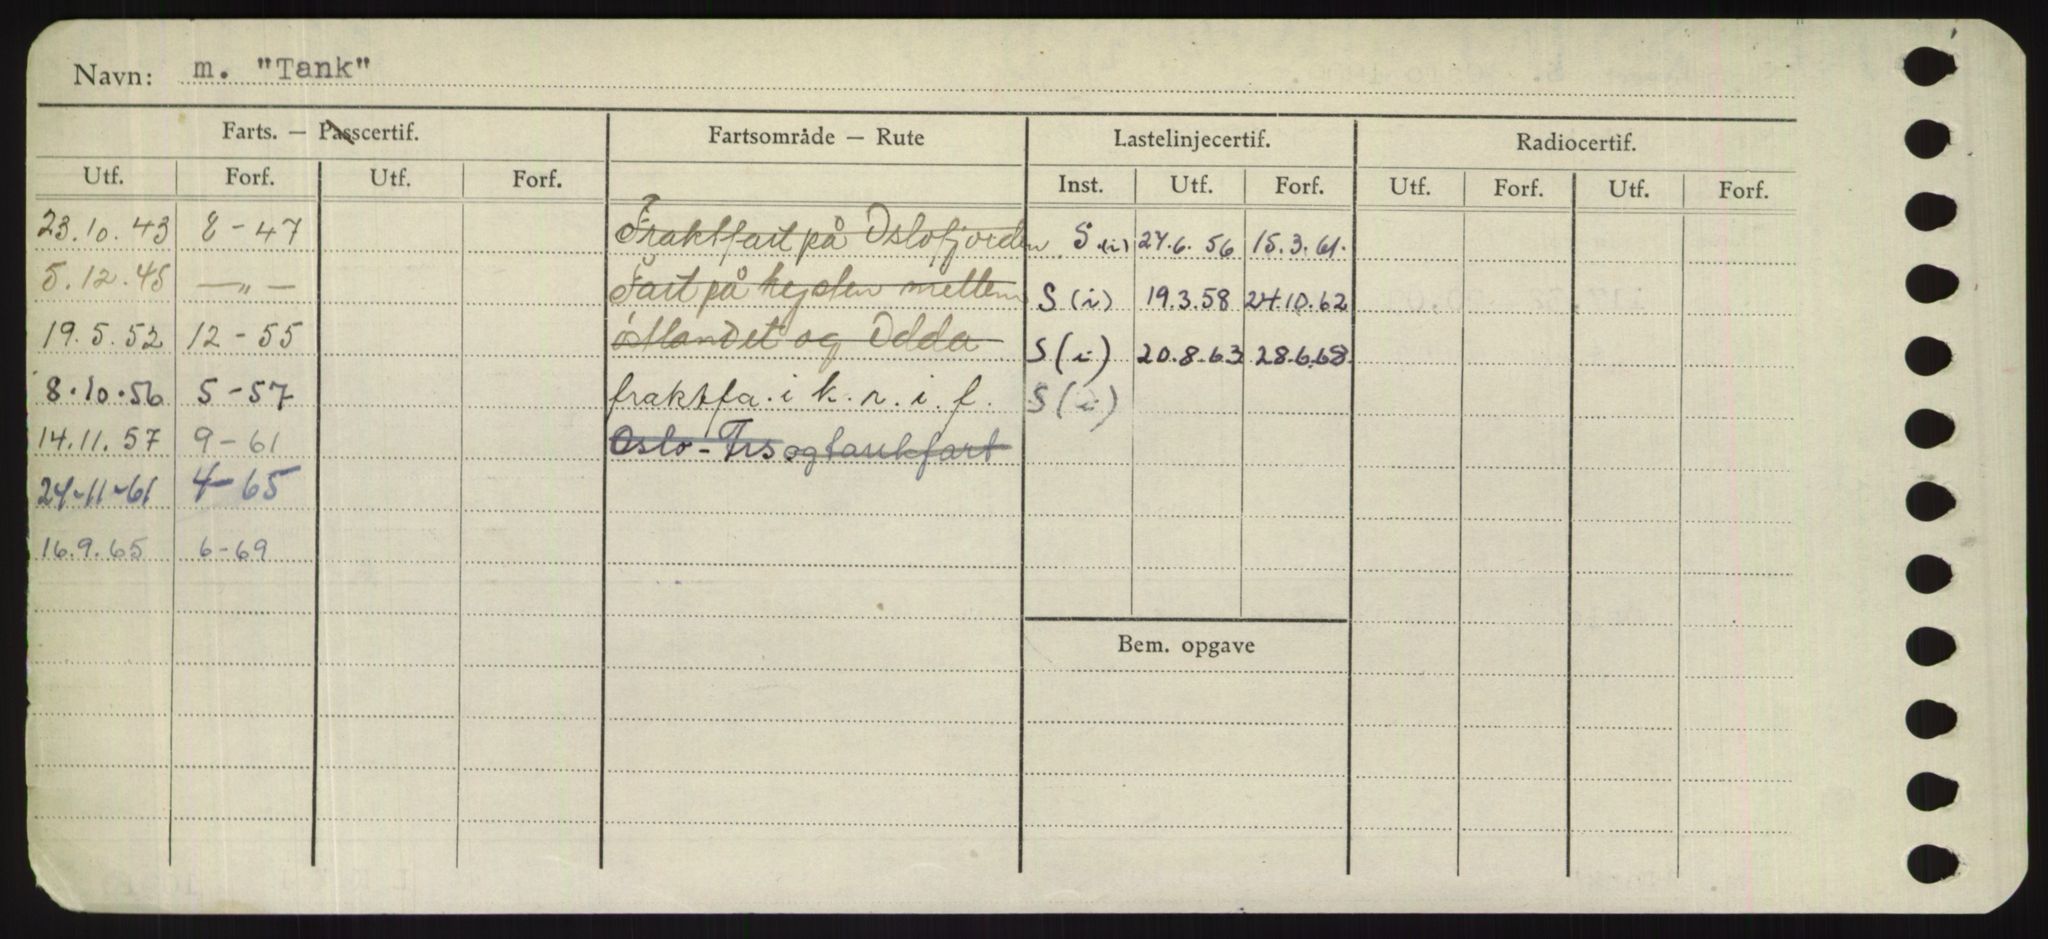 Navn: m. "Tank"
Farts. — Passcertif. Fartsområde — Rute Lastelinjecertif. Radiocertif.
Utf. Forf. Utf. Forf. Inst. Utf. Forf. Utf. Forf. Utf. Forf.
23.10.43 8-47 Fraktfart på Oslofjorden S.(i) 24.6.56 15.3.61.
5.12.45 —"— Fart på kysten mellem S (i) 19.3.58 24.10.62
19.5.52 12-55 østlandet og Odda S (i) 20.8.63 28.6.68.
8.10.56 5-57 fraktfa. i k. n. i. f. S (i)
14.11.57 9-61 Oslo-Frs og tankfart
24-11-61 4-65
16.9.65 6-69
Bem. opgave